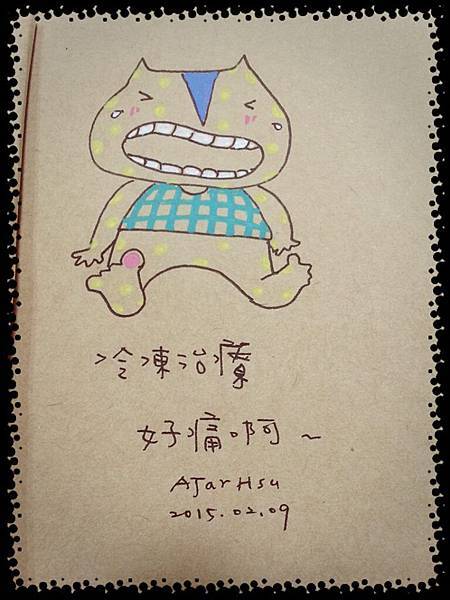 冷凍治療
好痛啊~
AJar Hsu
2015.02.09